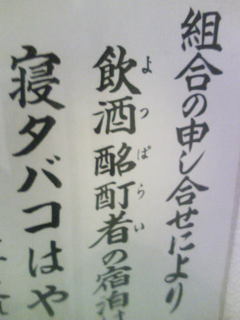 組合の申し合せにより
よっぱらい
飲酒酩酊者の宿泊は
寝タバコはや